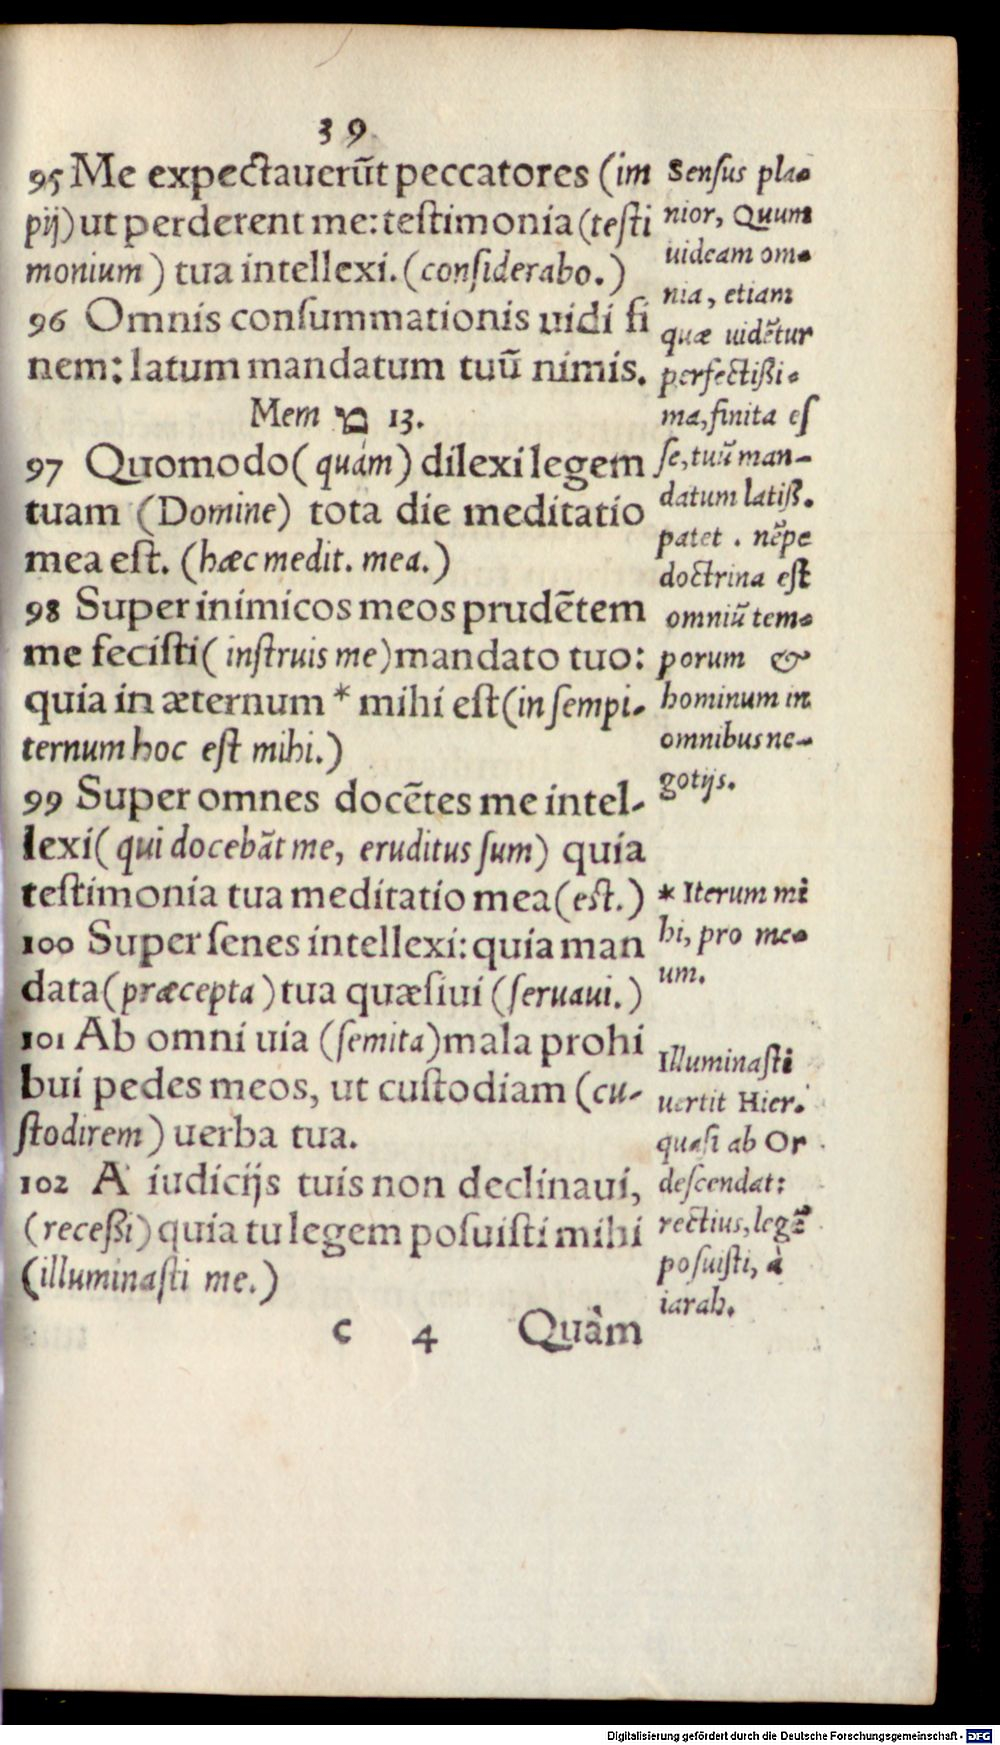 39
95 Me expectauerūt peccatores (im
pij) ut perderent me: testimonia (testi
monium) tua intellexi. (considerabo.)
96 Omnis consummationis uidi fi
nem: latum mandatum tuū nimis.
Mem מ 13.
97 Quomodo (quàm) dilexi legem
tuam (Domine) tota die meditatio
mea est. (hæc medit. mea.)
98 Super inimicos meos prudētem
me fecisti (instruis me) mandato tuo:
quia in æternum * mihi est (in sempi-
ternum hoc est mihi.)
99 Super omnes docētes me intel-
lexi (qui docebāt me, eruditus sum) quia
testimonia tua meditatio mea (est.)
100 Super senes intellexi: quia man
data (præcepta) tua quæsiui (seruaui.)
101 Ab omni uia (semita) mala prohi
bui pedes meos, ut custodiam (cu-
stodirem) uerba tua.
102 A iudicijs tuis non declinaui,
(recessi) quia tu legem posuisti mihi
(illuminasti me.)
c 4 Quàm
Sensus pla-
nior, Quum
uideam om-
nia, etiam
quæ uidētur
perfectissi-
ma, finita es
se, tuū man-
datum latiss.
patet. nēpe
doctrina est
omniū tem-
porum &
hominum in
omnibus ne-
gotijs.
* Iterum mi
hi, pro me-
um.
Illuminasti
uertit Hier.
quasi ab Or
descendat:
rectius, legē
posuisti, à
iarah.
Digitalisierung gefördert durch die Deutsche Forschungsgemeinschaft - DFG